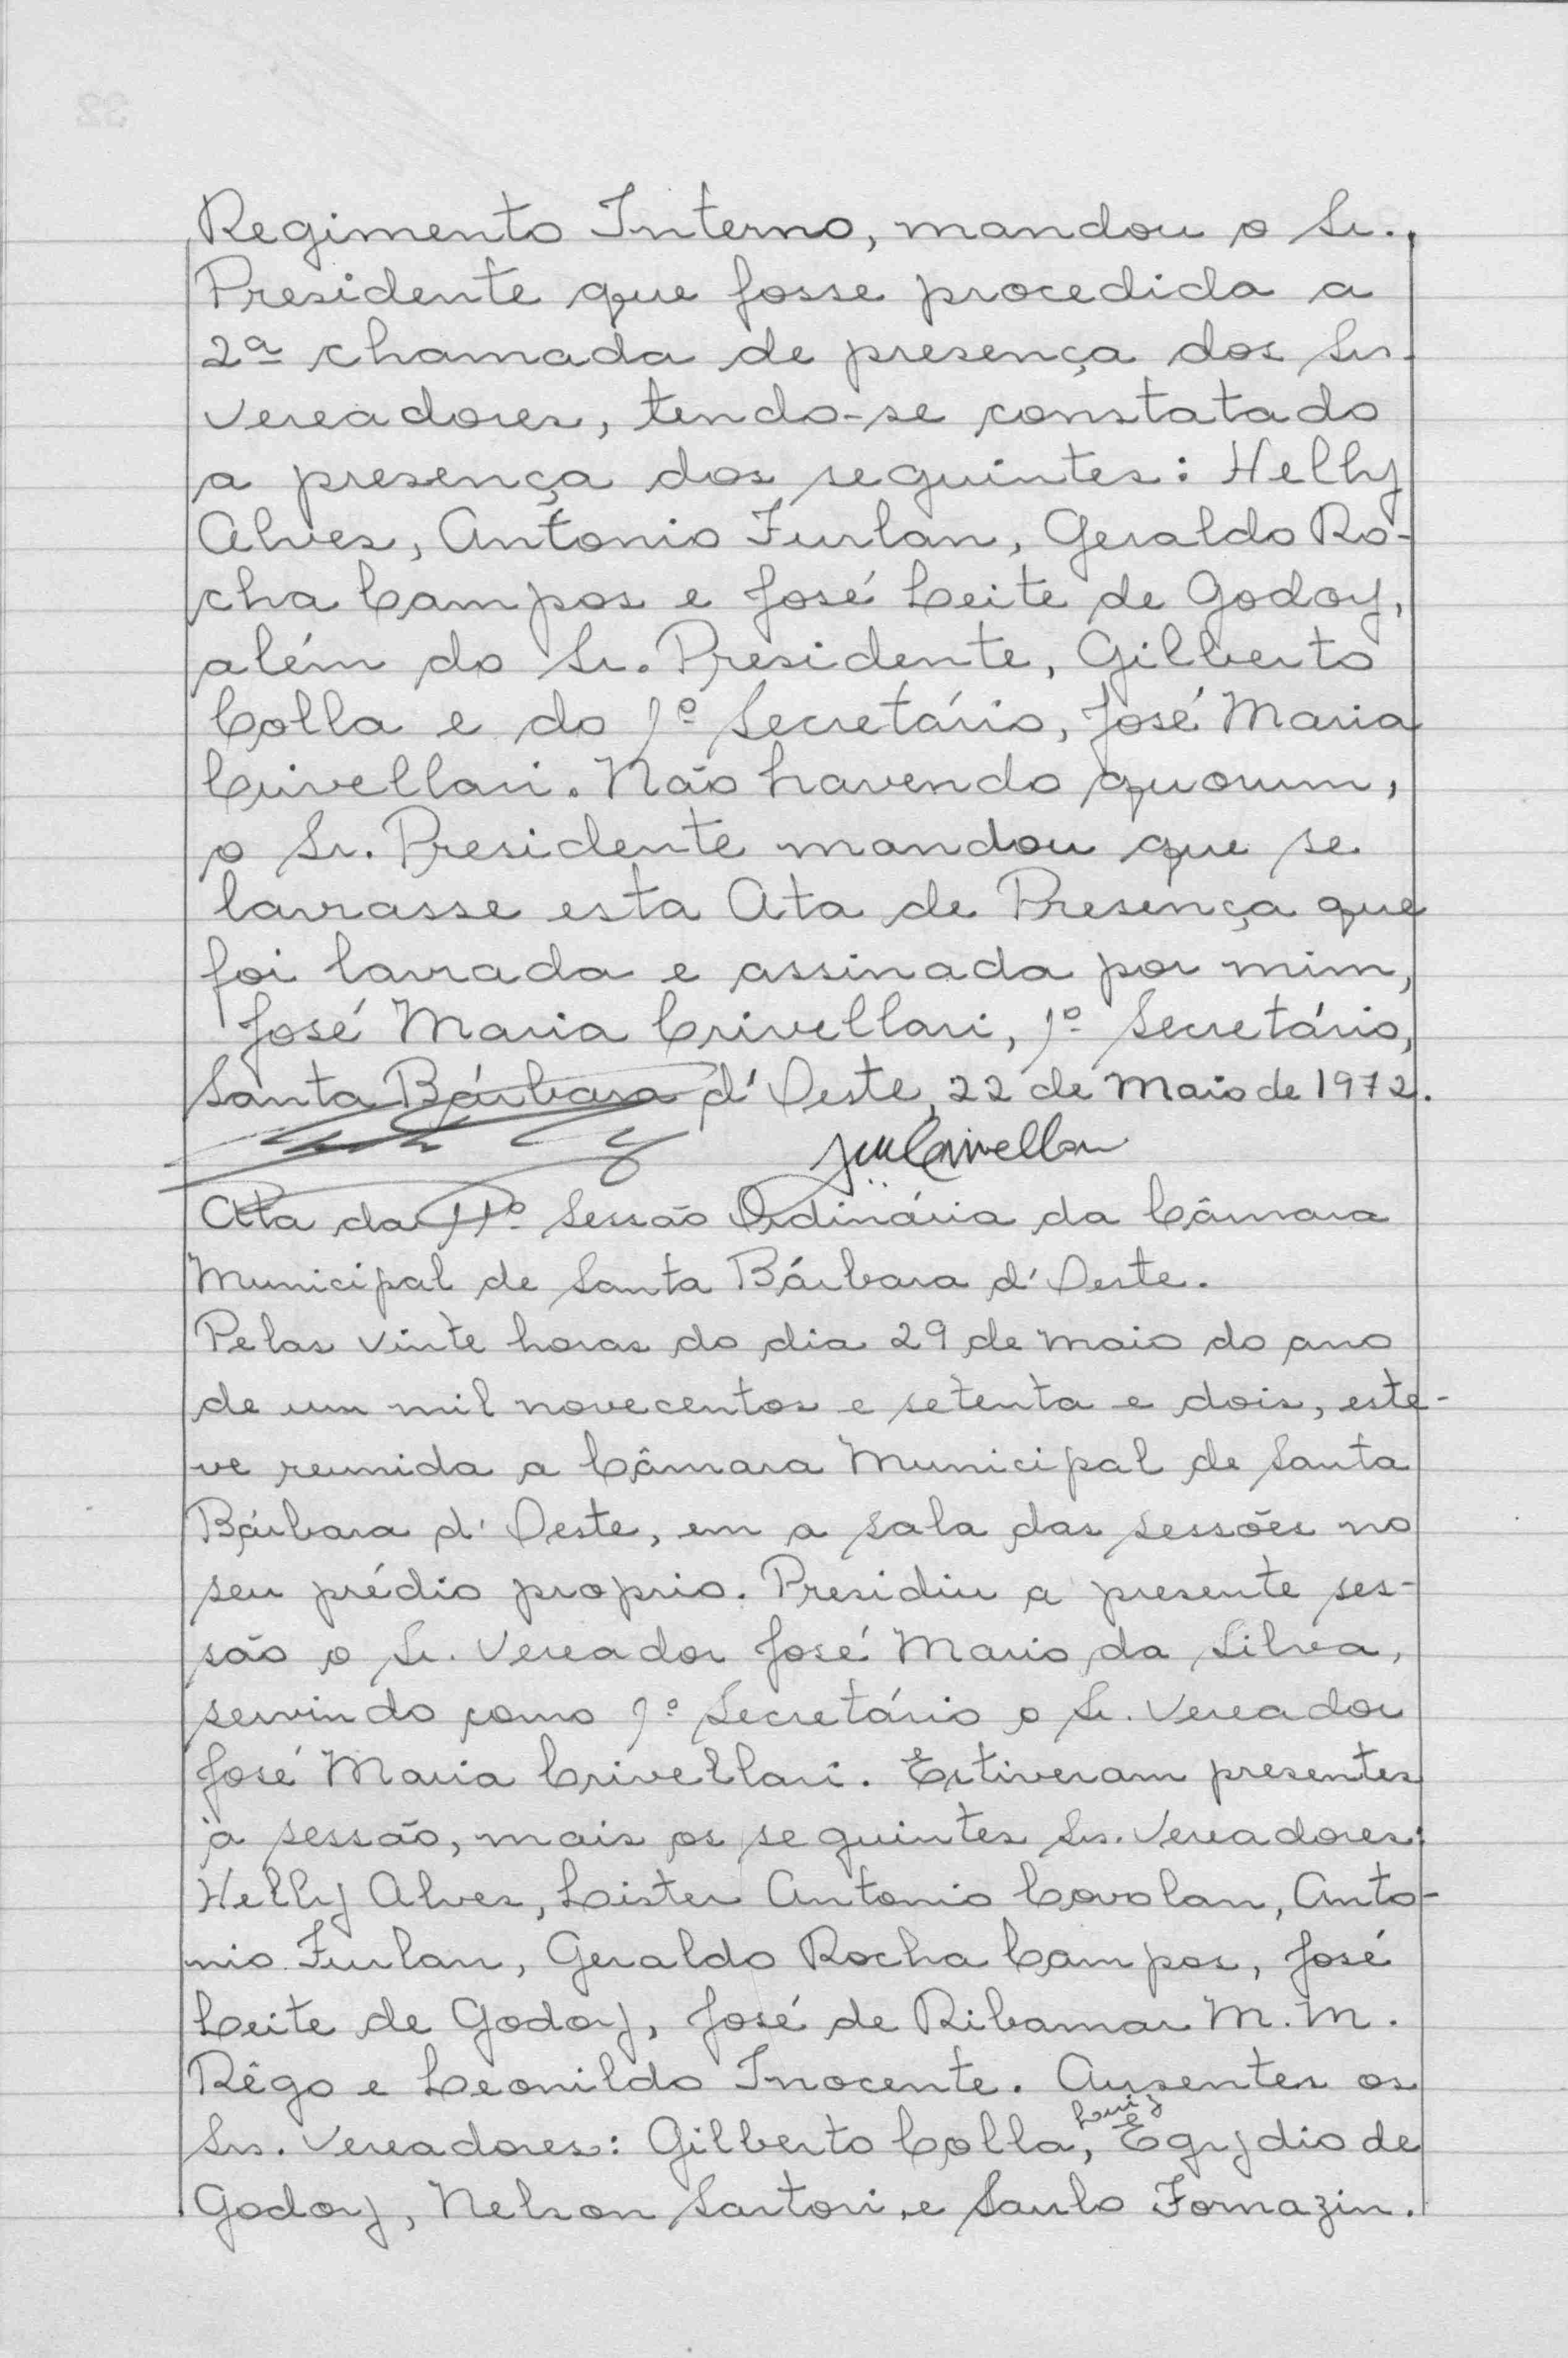 Regimento Interno, mandou o Sr.
Presidente que fosse procedida a
2ª chamada de presença dos Srs.
vereadores, tendo-se constatado
a presença dos seguintes: Helly
Alves, Antonio Furlan, Geraldo Ro-
cha Campos e José Leite de Godoy,
além do Sr. Presidente, Gilberto
Colla e do 1º Secretário, José Maria
Crivellari. Não havendo quorum,
o Sr. Presidente mandou que se
lavrasse esta Ata de Presença que
foi lavrada e assinada por mim,
José Maria Crivellari, 1º Secretário,
Santa Bárbara d'Oeste, 22 de Maio de 1972.
JMCrivellari
Ata da 11ª Sessão Ordinária da Câmara
Municipal de Santa Bárbara d'Oeste.
Pelas vinte horas do dia 29 de maio do ano
de um mil novecentos e setenta e dois, este-
ve reunida a Câmara Municipal de Santa
Bárbara d'Oeste, em a sala das sessões no
seu prédio proprio. Presidiu a presente ses-
são o Sr. Vereador José Mario da Silva,
servindo como 1º Secretário o Sr. Vereador
José Maria Crivellari. Estiveram presentes
à sessão, mais os seguintes Srs. Vereadores:
Helly Alves, Lister Antonio Covolan, Anto-
nio Furlan, Geraldo Rocha Campos, José
Leite de Godoy, José de Ribamar M. M.
Rêgo e Leonildo Inocente. Ausentes os
Srs. Vereadores: Gilberto Colla, Luiz Egydio de
Godoy, Nelson Sartori, e Saulo Fornazin.